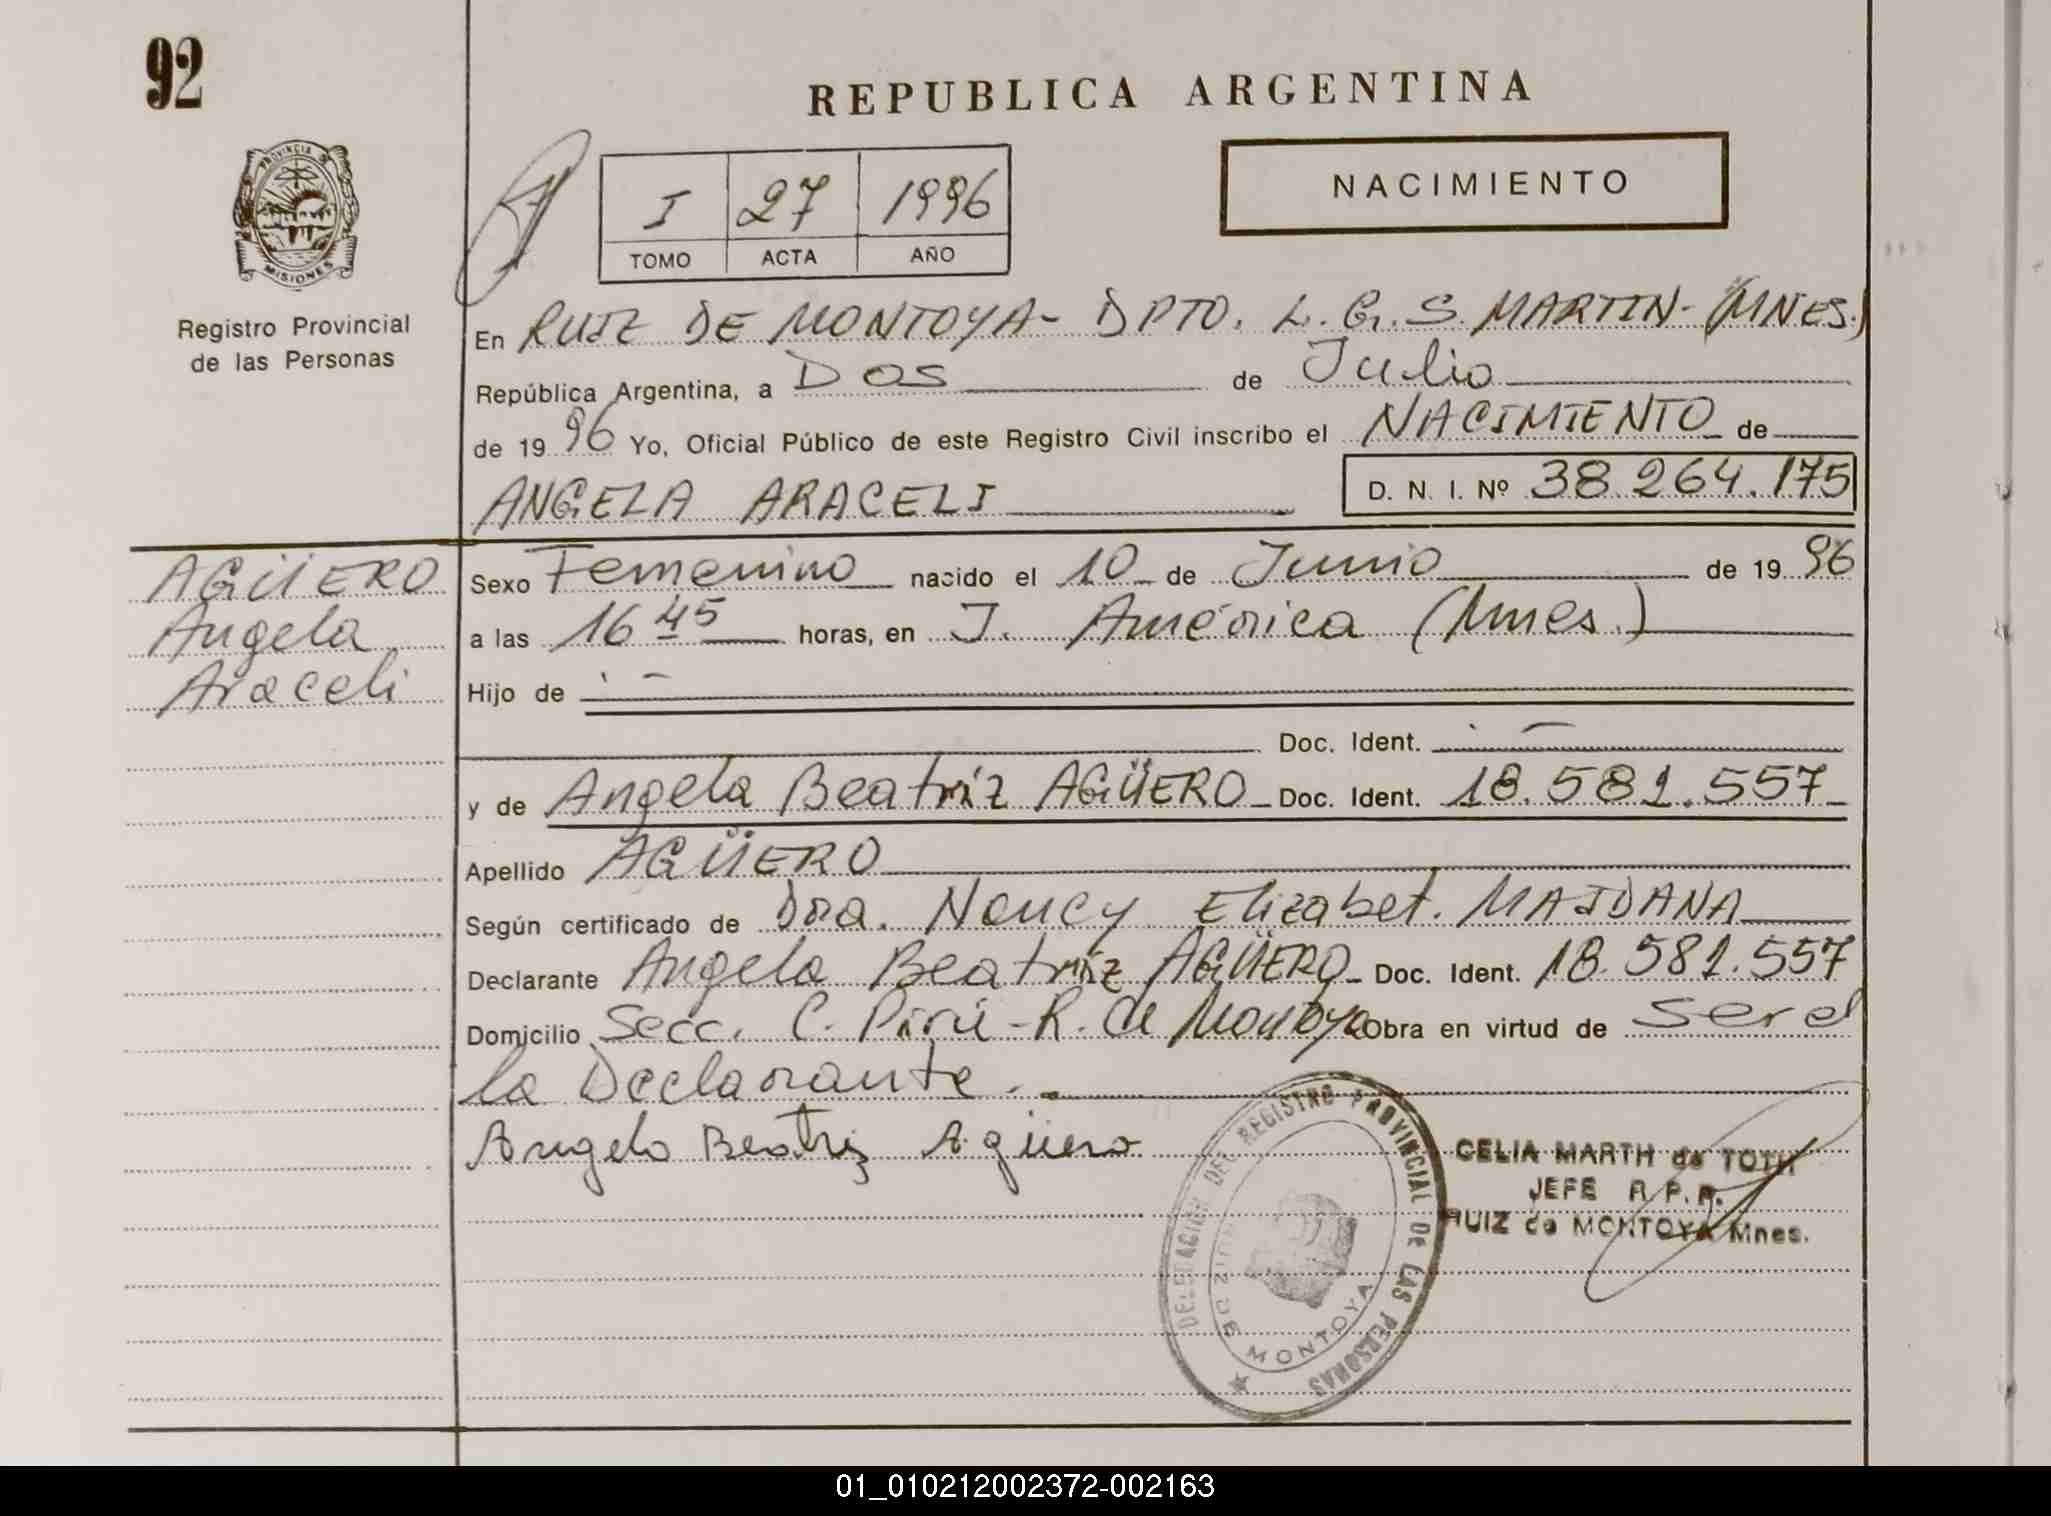 92
REPUBLICA ARGENTINA
PROVINCIA DE
MISIONES
Registro Provincial
de las Personas
I 27 1996
TOMO ACTA AÑO
NACIMIENTO
En RUIZ DE MONTOYA- DPTO. L. G. S. MARTIN- (MNES.)
República Argentina, a Dos de Julio
de 1996 Yo, Oficial Público de este Registro Civil inscribo el NACIMIENTO de
ANGELA ARACELI D. N. I. Nº 38.264.175
AGÜERO
Angela
Araceli
Sexo Femenino nacido el 10 de Junio de 1996
a las 16 45 horas, en J. América (Mnes.)
Hijo de
Doc. Ident.
y de Angela Beatriz AGÜERO Doc. Ident. 18.581.557
Apellido AGÜERO
Según certificado de Dra. Nancy Elizabet. MAIDANA
Declarante Angela Beatriz AGÜERO Doc. Ident. 18.581.557
Domicilio Secc. C. Pirú - R. de Montoya Obra en virtud de ser el
la Declarante.
Angela Beatriz Agüero
DELEGACION DEL REGISTRO PROVINCIAL DE LAS PERSONAS
RUIZ DE MONTOYA
CELIA MARTH de TOTH
JEFE R.P.P.
RUIZ de MONTOYA Mnes.
01_010212002372-002163